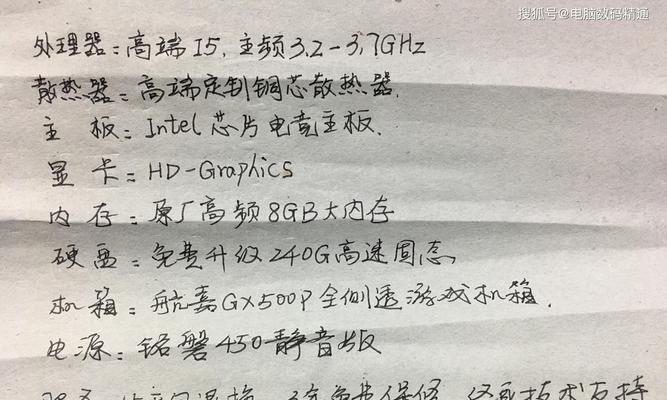 搜狐号@电脑数码精通
处理器：高端I5，主频3.2-3.7GHz
散热器：高端定制铜芯散热器.
主板：Intel芯片电竞主板.
显卡：HD-Graphics
内存：原厂高频8GB大内存
硬盘：免费升级240G高速固态
机箱：航嘉GX500P全侧透游戏机箱.
电源：铭磐450静音版
免费保修 终身技术支持